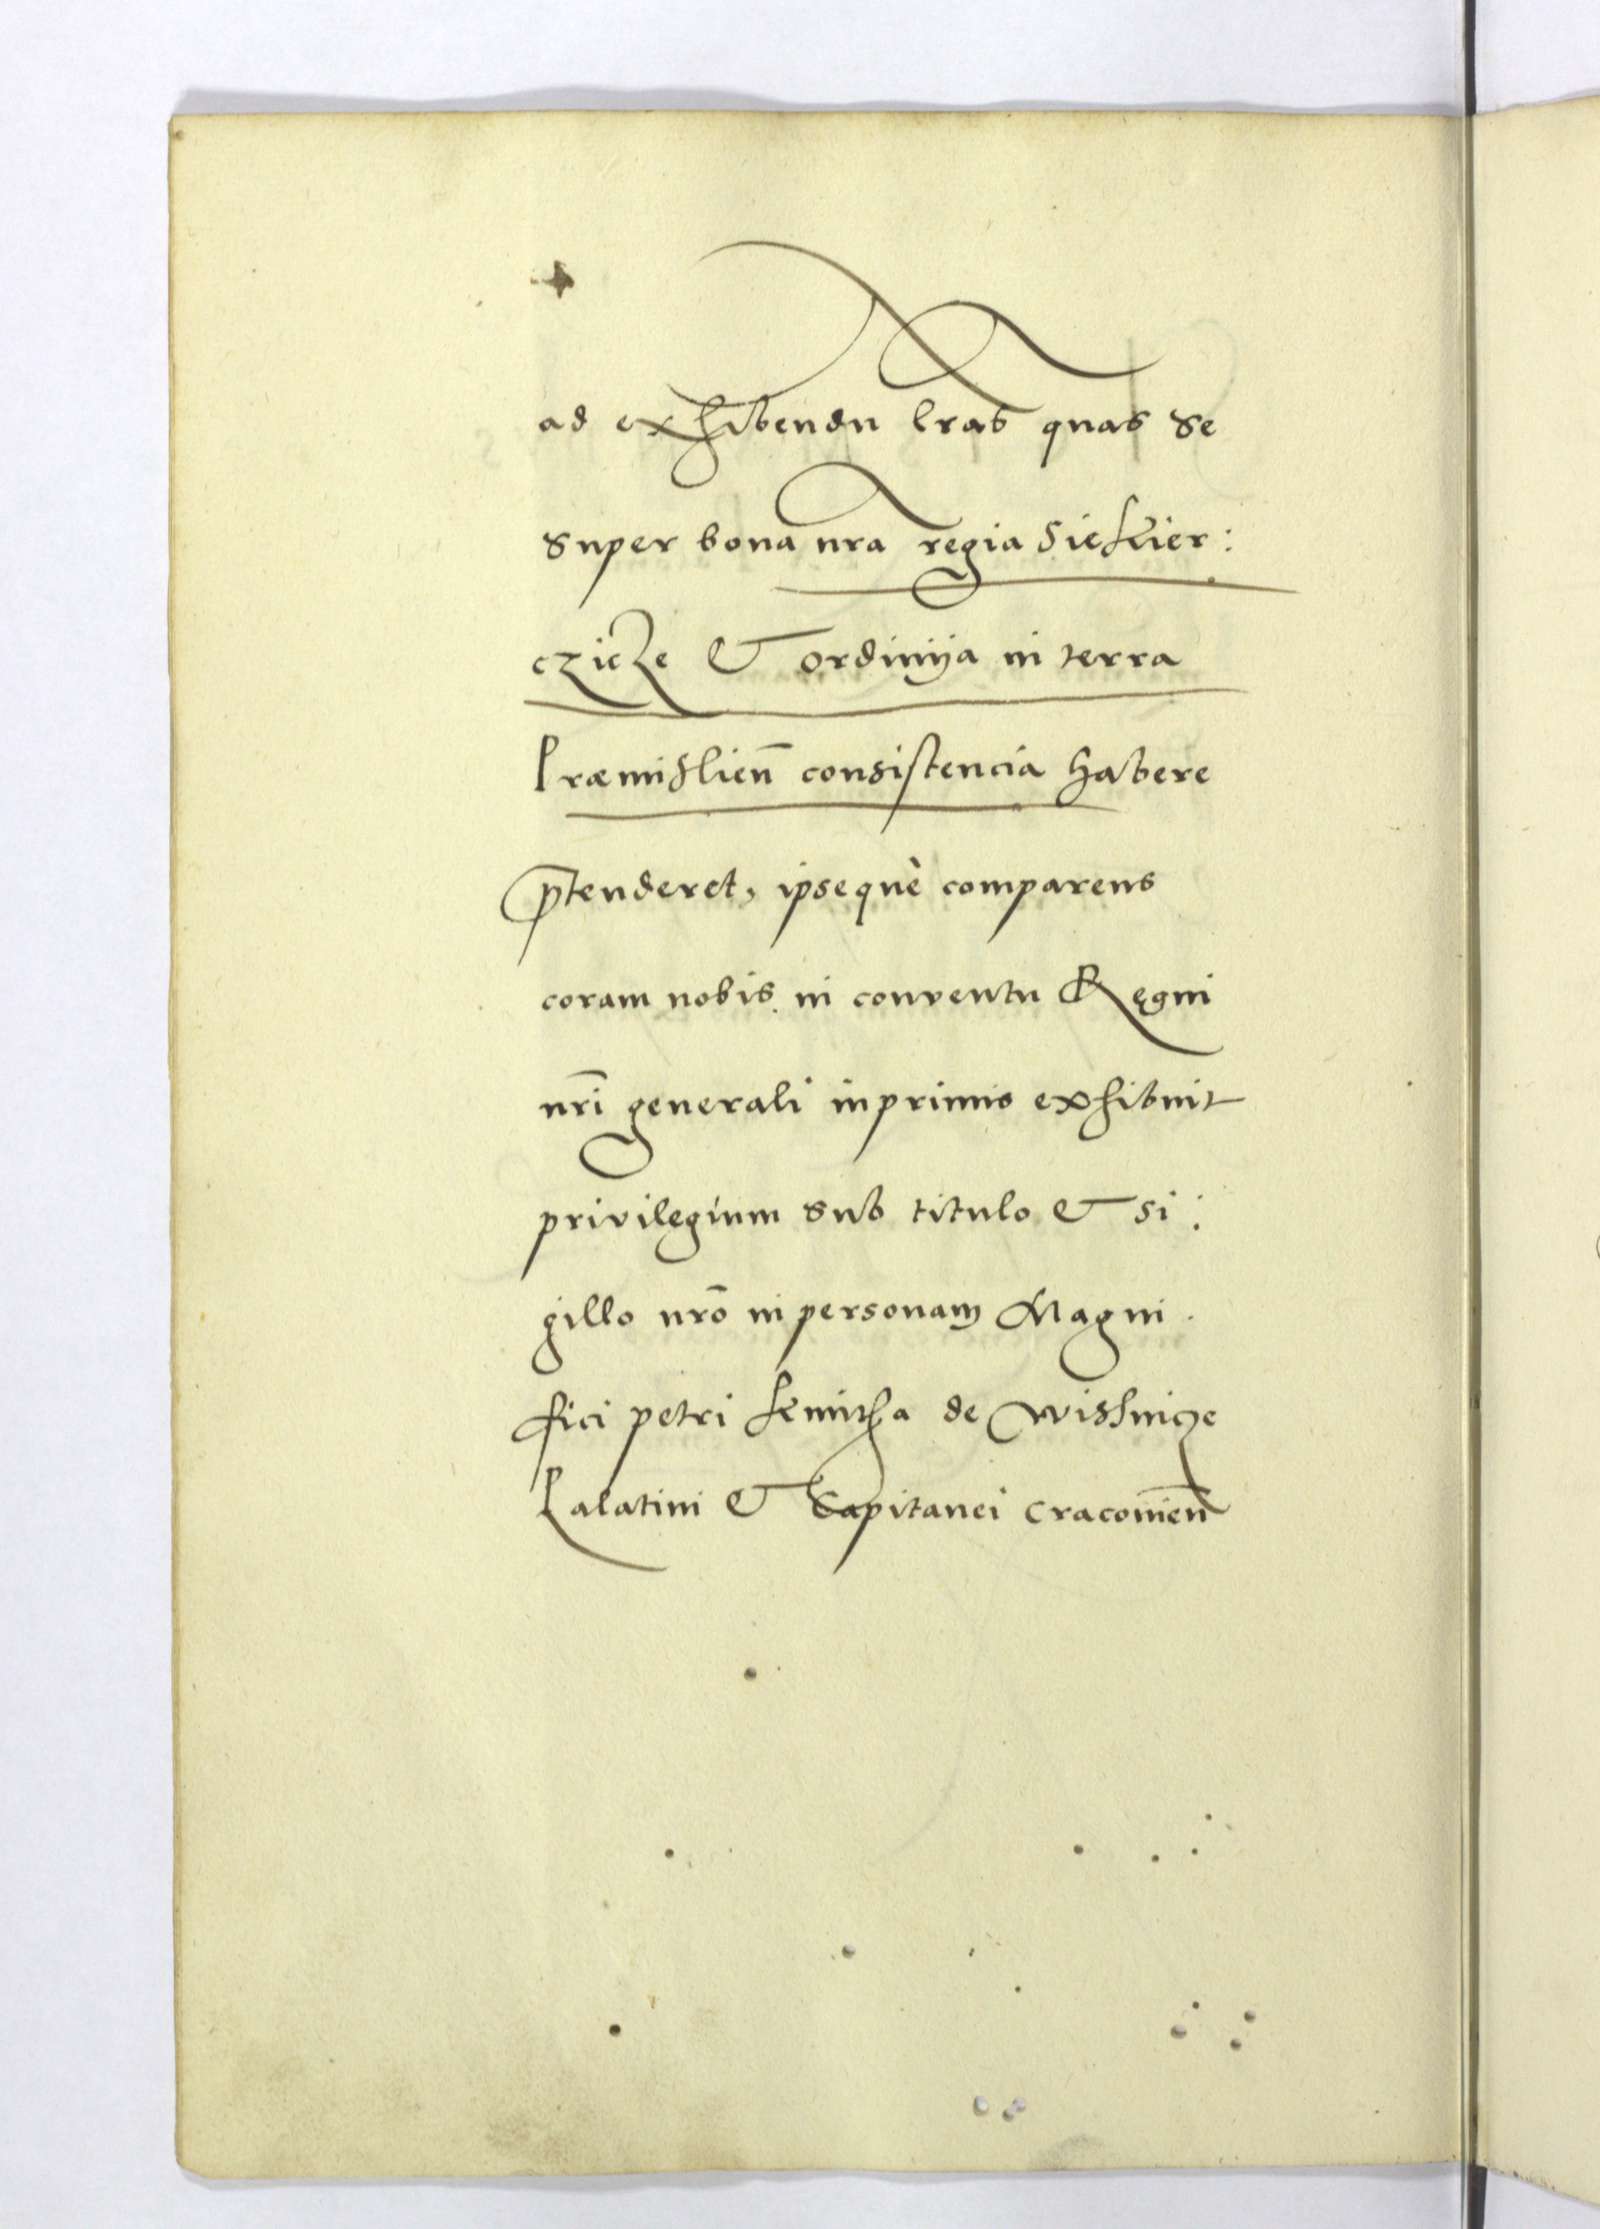 ad exhibendu lras quas se
super bona nra regia Siekier:
czicze & ordinija in terra
Præmislien̄ consistencia habere
p̄tenderet, ipsequè comparens
coram nobis in conventu Regni
nr̄i generali inprimis exhibuit
privilegium sub titulo & si:
gillo nrō in personam Magni
fici petri kmitha de wisnicze
Palatini & Capitanei cracovien̄